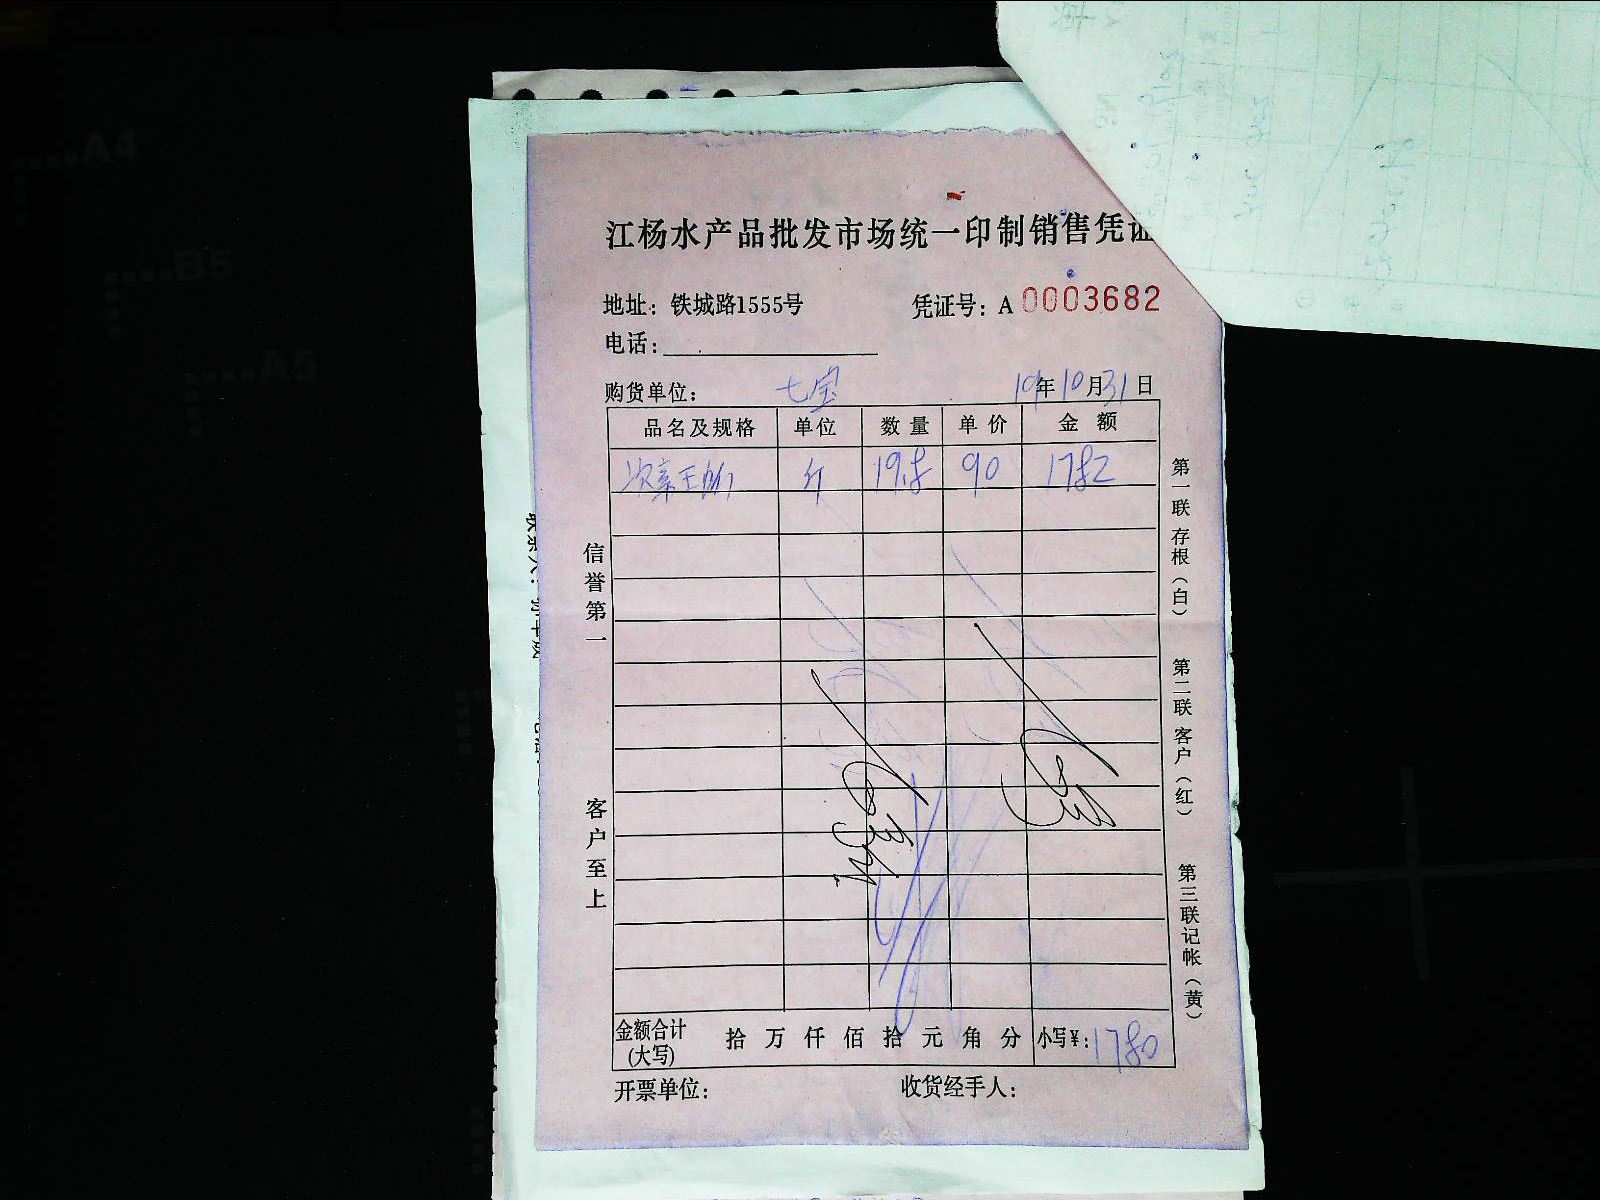 江杨水产品批发市场统一印制销售凭证
地址：铁城路1555号
凭证号：A 0003682
电话：
购货单位： 七宝
19年10月31日
品名及规格 单位 数量 单价 金额
斤 19.8 90 1782
信誉第一
客户至上
第一联 存根（白）
第二联 客户（红）
第三联 记帐（黄）
金额合计(大写) 拾 万 仟 佰 拾 元 角 分 小写¥：1780
开票单位： 收货经手人：
A4
B5
A5